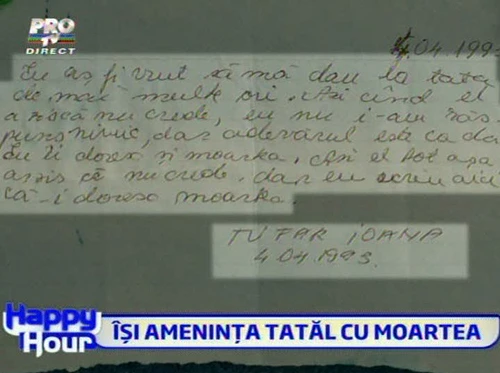 PRO
TV
DIRECT
4.04.199
Eu aș fi vrut să mă dau la tata
de mai multe ori. Azi cînd el
nu crede, eu nu i-am răs-
puns nimic, dar adevărul este ca da
Eu îi doresc și moartea. Azi el tot așa
a zis că nu crede. dar eu scriu aici
că-i doresc moartea.
TUFAR IOANA
4.04.1993.
Happy
Hour
ÎȘI AMENINȚA TATĂL CU MOARTEA